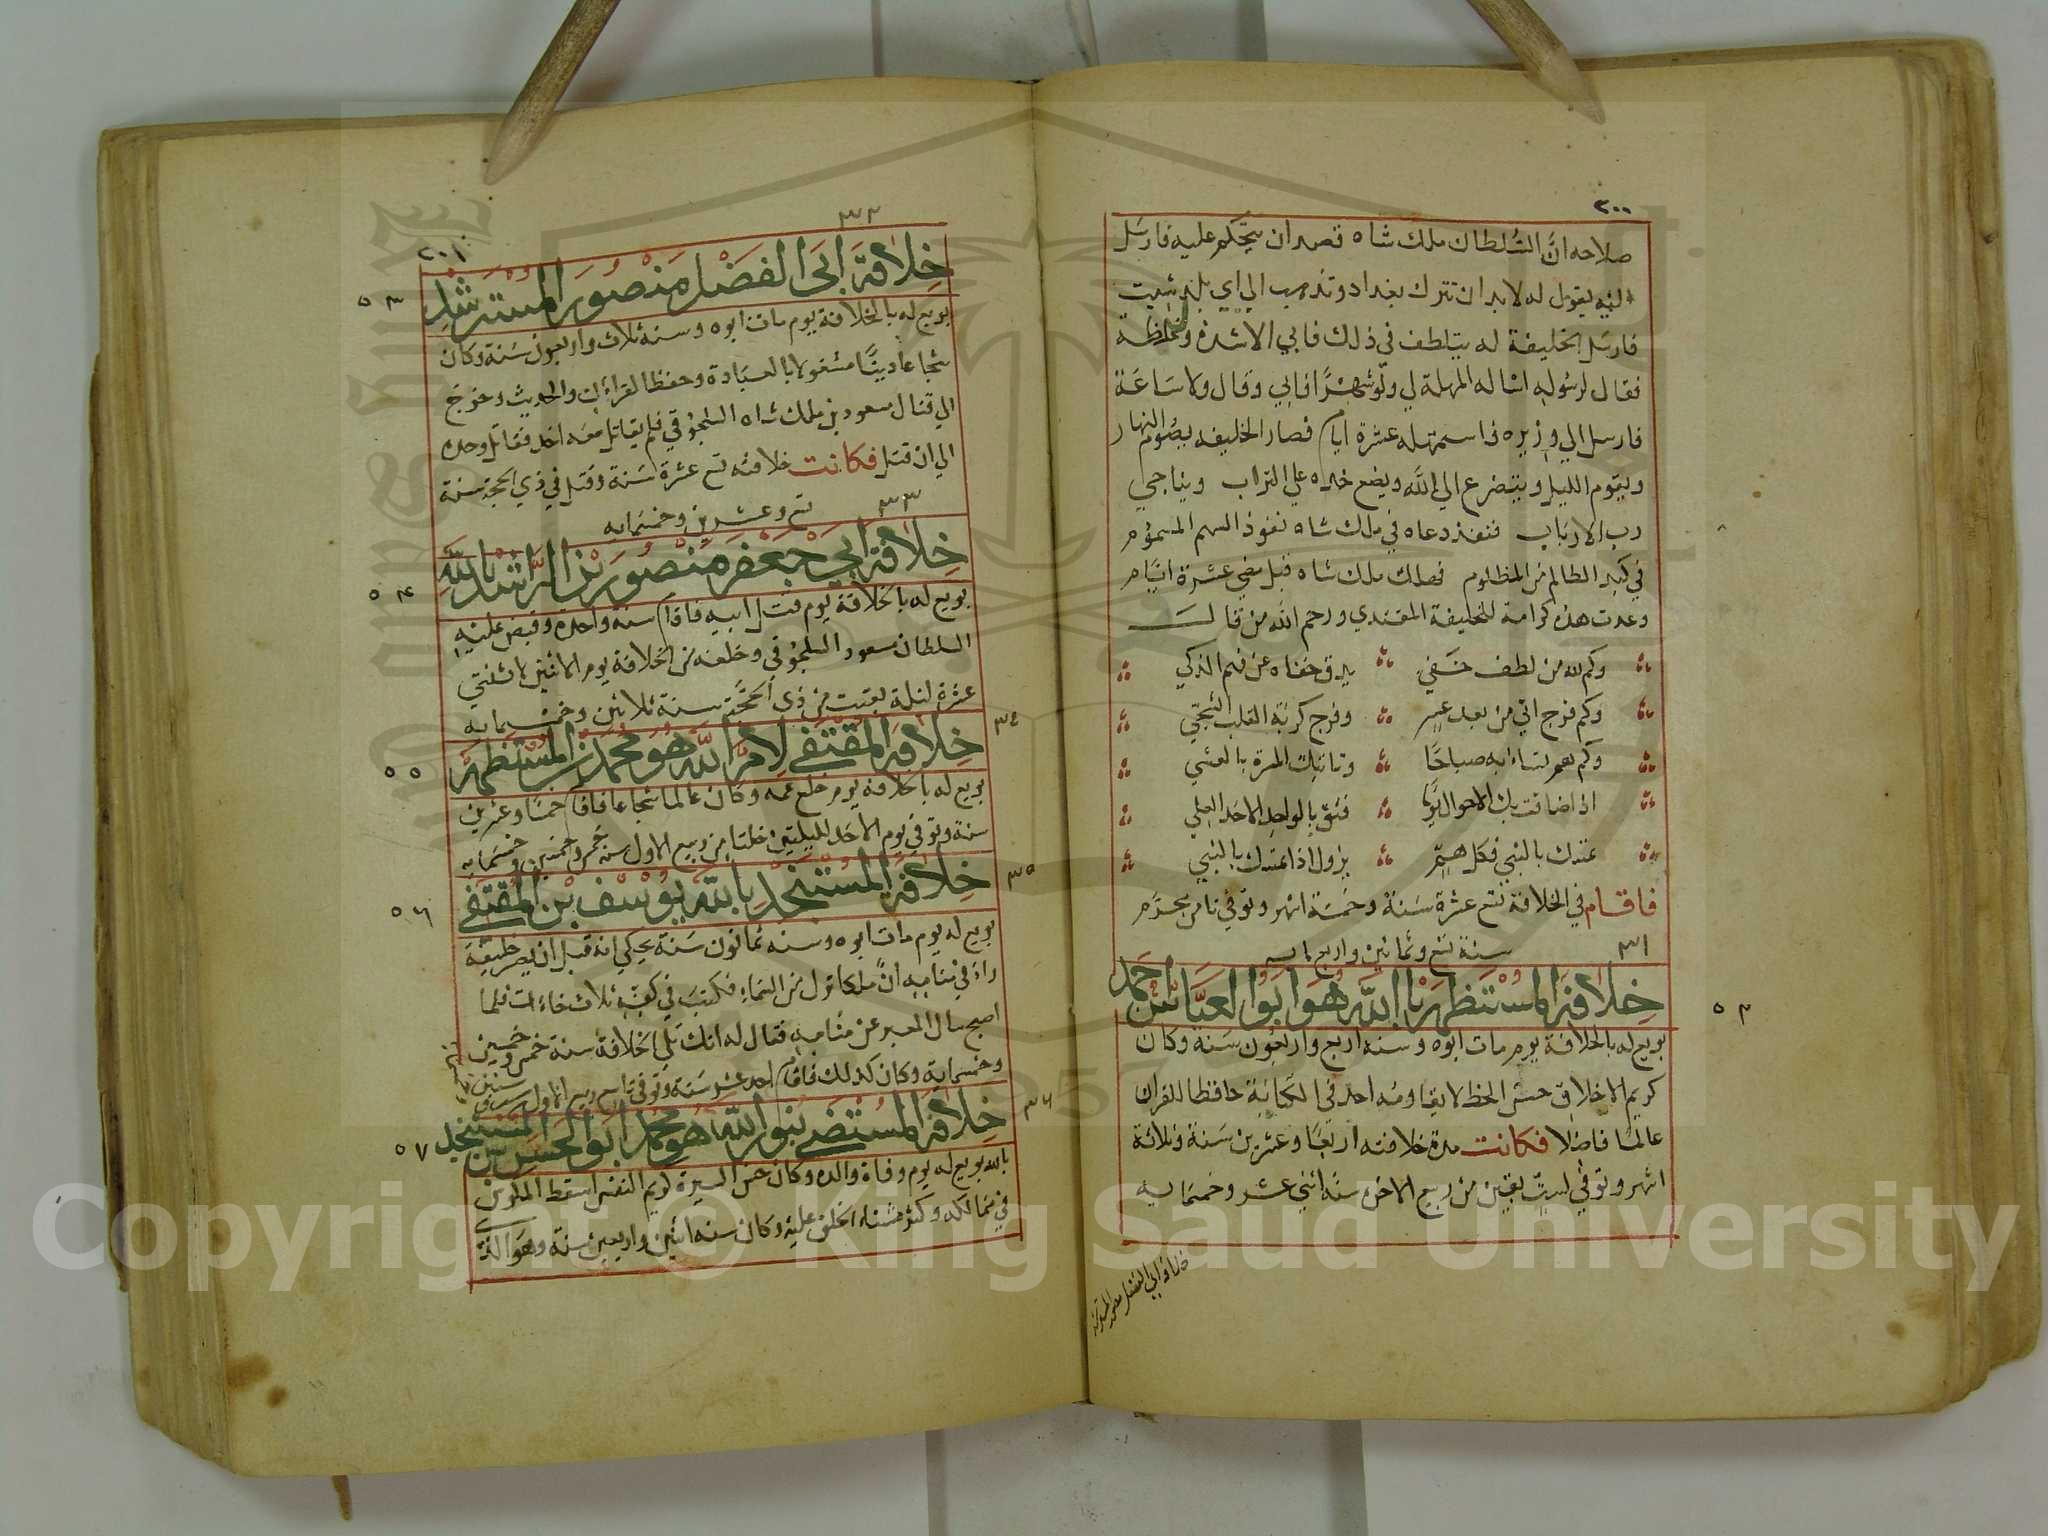 ٢٠٠
صلاحه ان السلطان ملك شاه قصد ان يتحكم عليه فارسل
اليه يقول له لابد ان تترك بغداد وتذهب الى اي بلد شئت
فارسل الخليفة له يتلطف في ذلك فابي الا شدة وغلظة
فقال لرسوله اسأله المهلة لي ولو شهرا فابي وقال ولا ساعة
فارسل الي وزيره فاستمهله عشرة ايام فصار الخليفه يصوم النهار
ويقوم الليل ويتضرع الي الله ويضع خده علي التراب ويناجي
رب الارباب فنفذ دعاه في ملك شاه نفوذ السهم المسموم
في كبد الظالم من المظلوم فهلك ملك شاه قبل مضي عشرة ايام
وعدت هذه كرامة للخليفة المقتدي ورحم الله من قال
وكم لله من لطف خفي يدق خفاه عن فهم الذكي
وكم فرج اتي من بعد عسر وفرج كربة القلب الشجي
وكم هم تساء به صباحا وتاتيك المسرة بالعشي
اذا ضاقت بك الاحوال يوما فثق بالواحد الاحد العلي
تمسك بالنبي فكل هم يزول اذا تمسك بالنبي
فاقام في الخلافة تسع عشرة سنة وخمسة اشهر وتوفي ثامن محرم
سنة تسع وثمانين واربعمايه
٣١
خلافة المستظهر بالله هو ابو العباس احمد
٥٢
بويع له بالخلافة يوم مات ابوه وسنه اربع واربعون سنة وكان
كريم الاخلاق حسن الخط لا يقاومه احد في الكتابة حافظا للقران
عالما فاضلا فكانت مدة خلافته اربعا وعشرين سنة وثلاثة
اشهر وتوفي لست بقين من ربيع الاخره سنة اثني عشر وخمسمايه
خلافة ابي الفضل منصور المسترشد
٢٠١
٣٢
خلافة ابي الفضل منصور المسترشد
٥٣
بويع له بالخلافة يوم مات ابوه وسنه ثلاث واربعون سنة وكان
شجاعا دينا مشغولا بالعبادة وحفظ القران والحديث وخرج
الي قتال مسعود بن ملك شاه السلجوقي فلم يقاتل معه احد فقاتل وحده
الي ان قتل فكانت خلافته تسع عشرة سنة وقتل في ذي الحجة سنة
تسع وعشرين وخمسمايه
٣٣
خلافة ابي جعفر منصور بن الراشد بالله
٥٤
بويع له بالخلافة يوم قتل ابيه فاقام سنة واحدة وقبض عليه
السلطان مسعود السلجوقي وخلعه من الخلافة يوم الاثنين لاثنتي
عشرة ليلة بقيت من ذي الحجة سنة ثلاثين وخمسمايه
٣٤
خلافة المقتفي لامر الله هو محمد بن المستظهر
٥٥
بويع له بالخلافة يوم خلع عمه وكان عالما شجاعا فاقام خمسا وعشرين
سنة وتوفي يوم الاحد لليلتين خلتا من ربيع الاول سنة خمس وخمسين وخمسمايه
٣٥
خلافة المستنجد بالله يوسف بن المقتفي
٥٦
بويع له يوم مات ابوه وسنه ثمانون سنة يحكي انه قبل ان يصير خليفة
راي في منامه ان ملكا نزل من السماء فكتب في كفه ثلاث خاءات فلما
اصبح سال المعبر عن منامه فقال له انك تلي الخلافة سنة خمس وخمسين
وخمسماية وكان كذلك فاقام احد عشر سنة وتوفي تاسع ربيع الاول سنة ست وستين
٣٦
خلافة المستضي بنور الله هو محمد ابو الحسن بن المستنجد
٥٧
بالله بويع له يوم وفاة والده وكان حسن السيرة كريم النفس اسقط المكوس
في ممالكه وكثر ثناء الخلق عليه وكان سنه اثنين واربعين سنة وهو الذي
Copyright © King Saud University